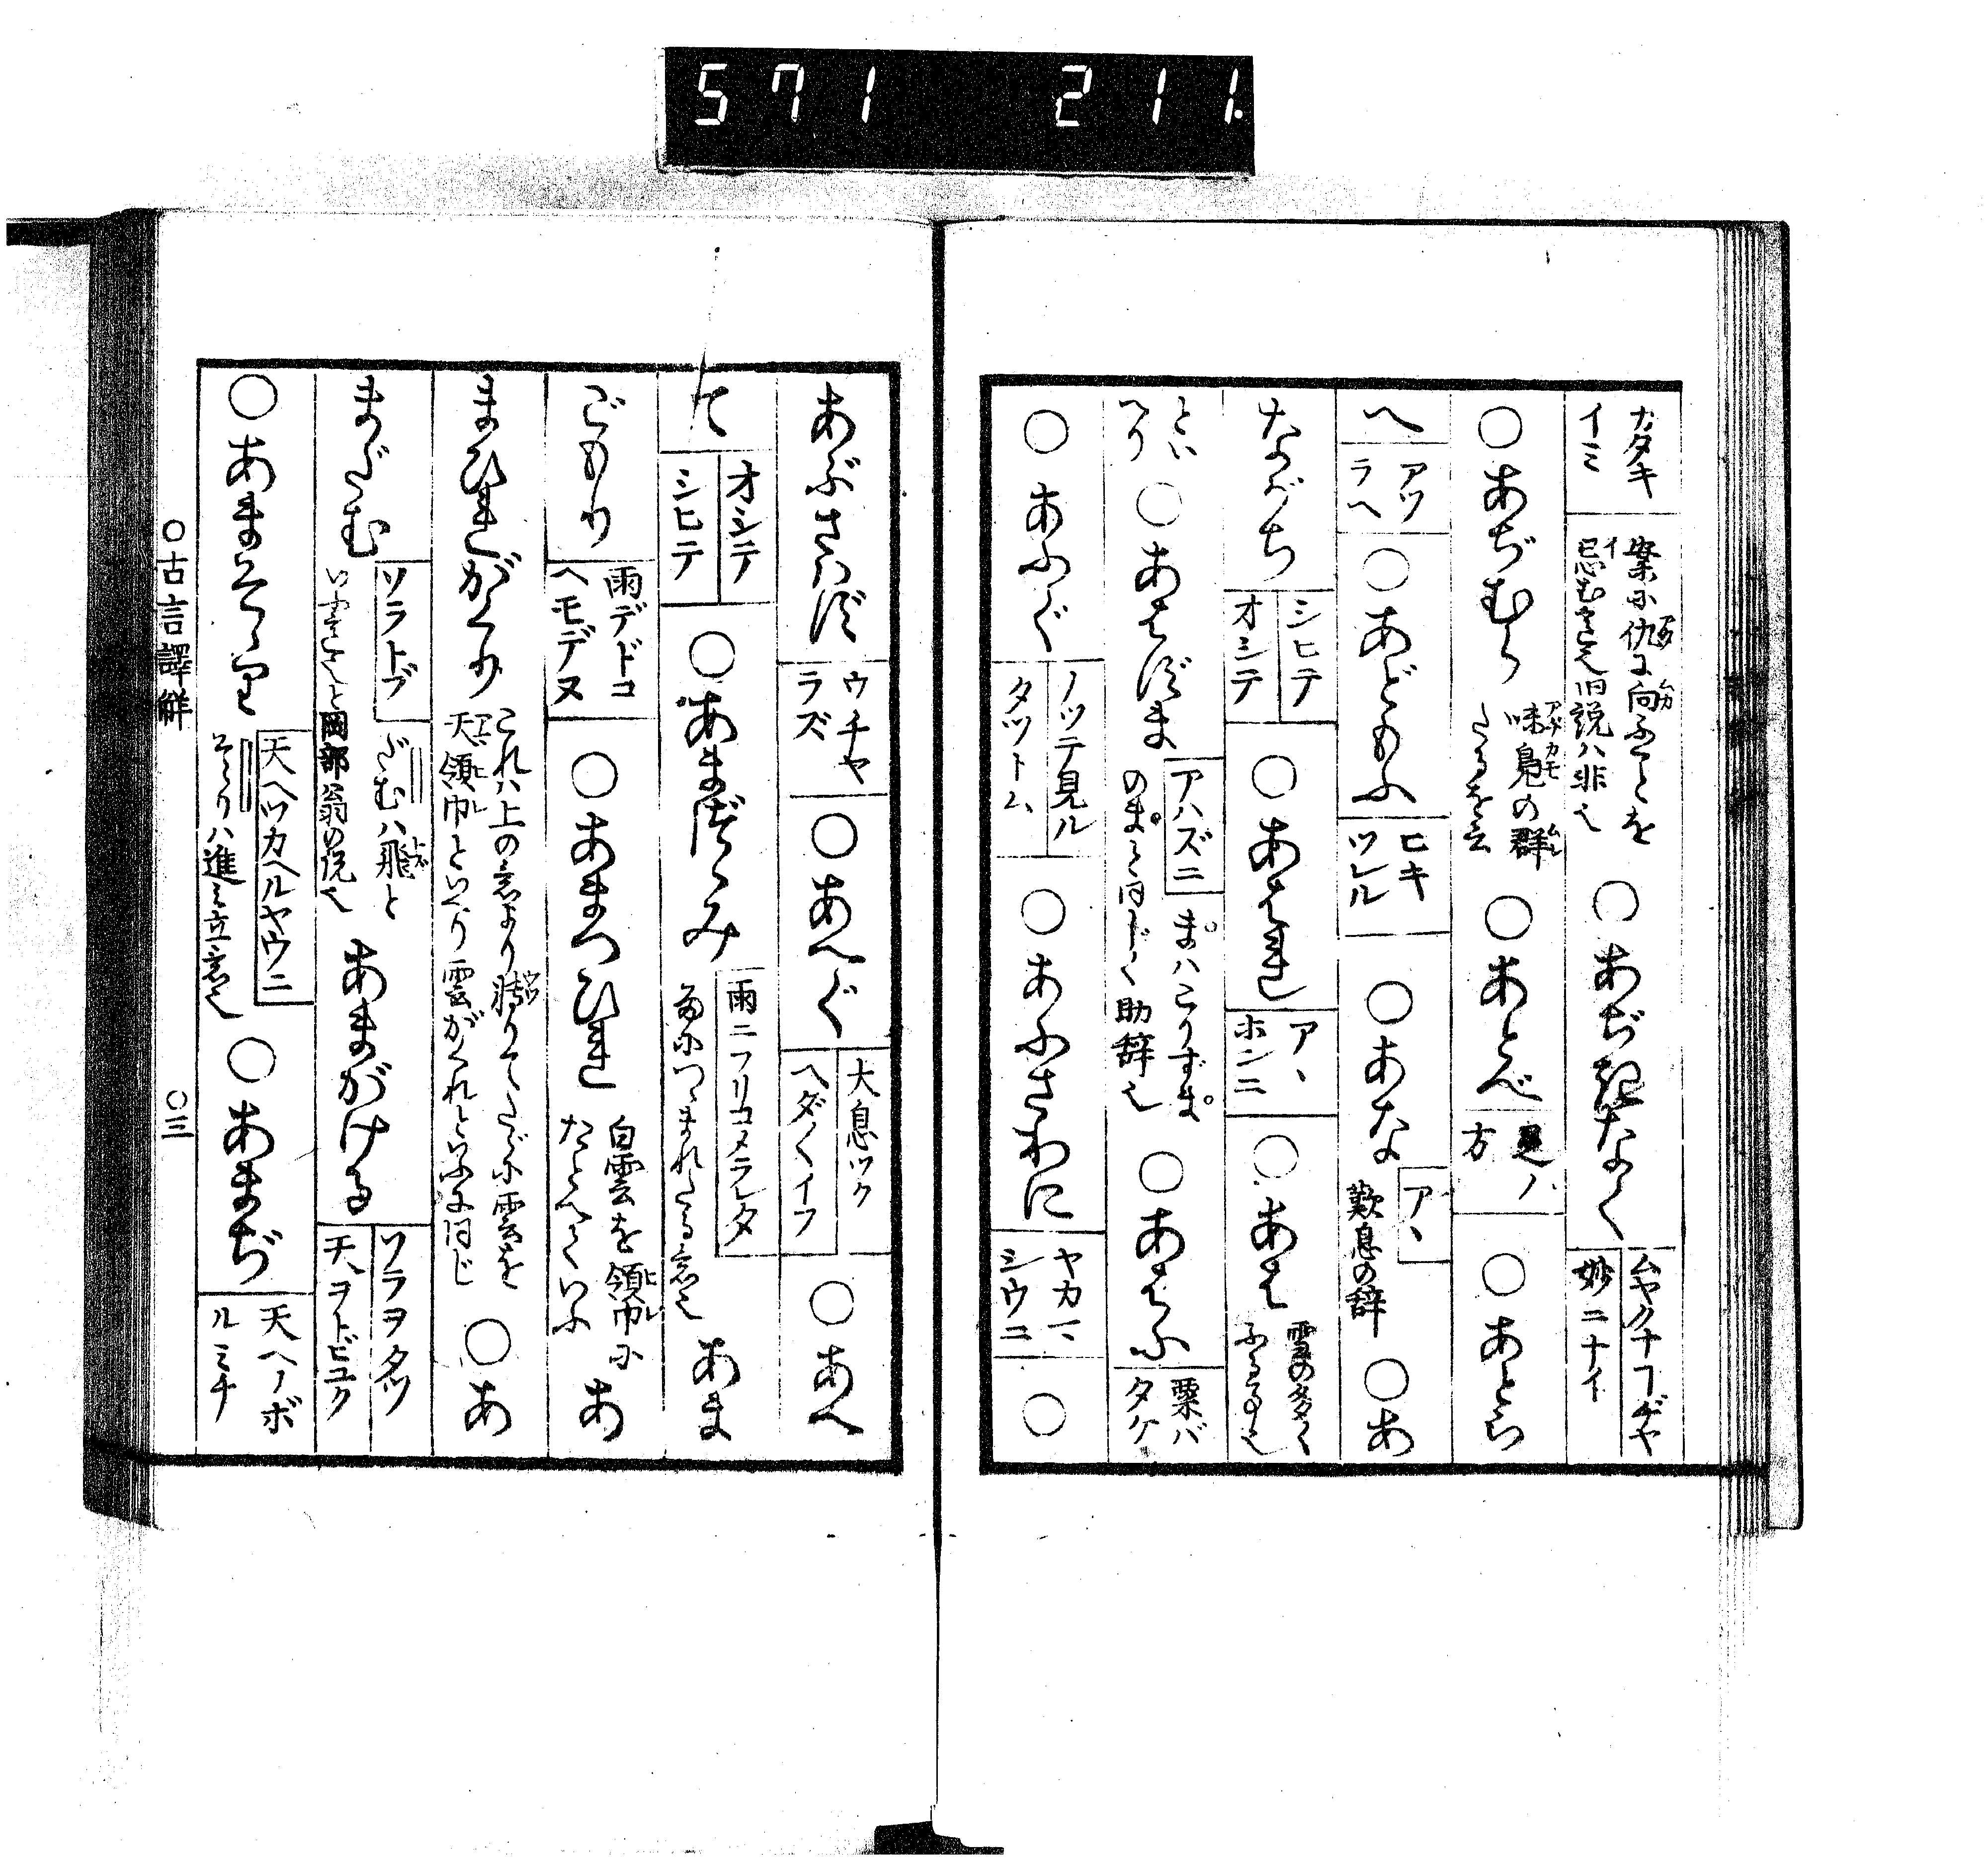 571 211.
カタキ
イミ
案に仇に向ふことを
忌むさま也旧説ハ非也
○あぢきなく
ムヤクナコヂヤ
妙ニナイ
○あぢむら
味鳧の群
たるを云
○あとべ
足ノ
方
○あとら
へ
アツ
ラヘ
○あどもふ
ヒキ
ツレル
○あな
アヽ
歎息の辞
○あ
ながち
シヒテ
オシテ
○あはれ
アヽ
ホンニ
○あは
雪の多く
ふる事也
とい
へり
○あはずま
アハズニ
まハこりずま
のまと同じく助辞也
○あはふ
粟バ
タケ
○あふぐ
ノツテ見ル
タツトム
○あふさわに
ヤカマ
シウニ
○
あぶさハず
ウチヤ
ラズ
○あへぐ
大息ツク
ヘダヘダイフ
○あへ
て
オシテ
シヒテ
○あまづゝみ
雨ニフリコメラレタ
雨につゝまれたる意也
あま
ごもり
雨デドコ
ヘモデヌ
○あまつひれ
白雲を領巾に
たとへていふ
あ
まひれがくり
これハ上の意より轉りてたゞに雲を
天領巾といへり雲がくれといふに同じ
○あ
まだむ
ソラトブ
だむハ飛と
いふことと岡部翁の説也
あまがける
ソラヲタツ
天ヲトビユク
○あまそゝり
天ヘツカヘルヤウニ
そゝりハ進み立意也
○あまぢ
天ヘノボ
ルミチ
○古言譯解
○三